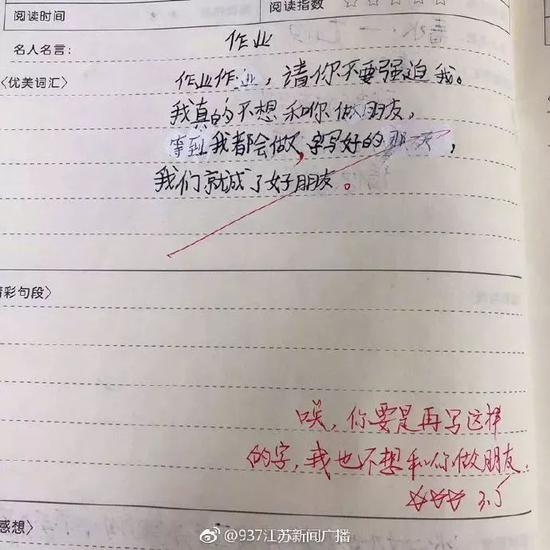 阅读时间
阅读指数 ☆☆☆☆☆
名人名言:
作业
〈优美词汇〉
作业作业,请你不要强迫我。
我真的不想和你做朋友,
等到我都会做,字写好的那天,
我们就诚了好朋友。
精彩句段〉
唉,你要是再写这样
的字,我也不想和你做朋友.
☆☆☆ 3.5
感想〉
@937江苏新闻广播